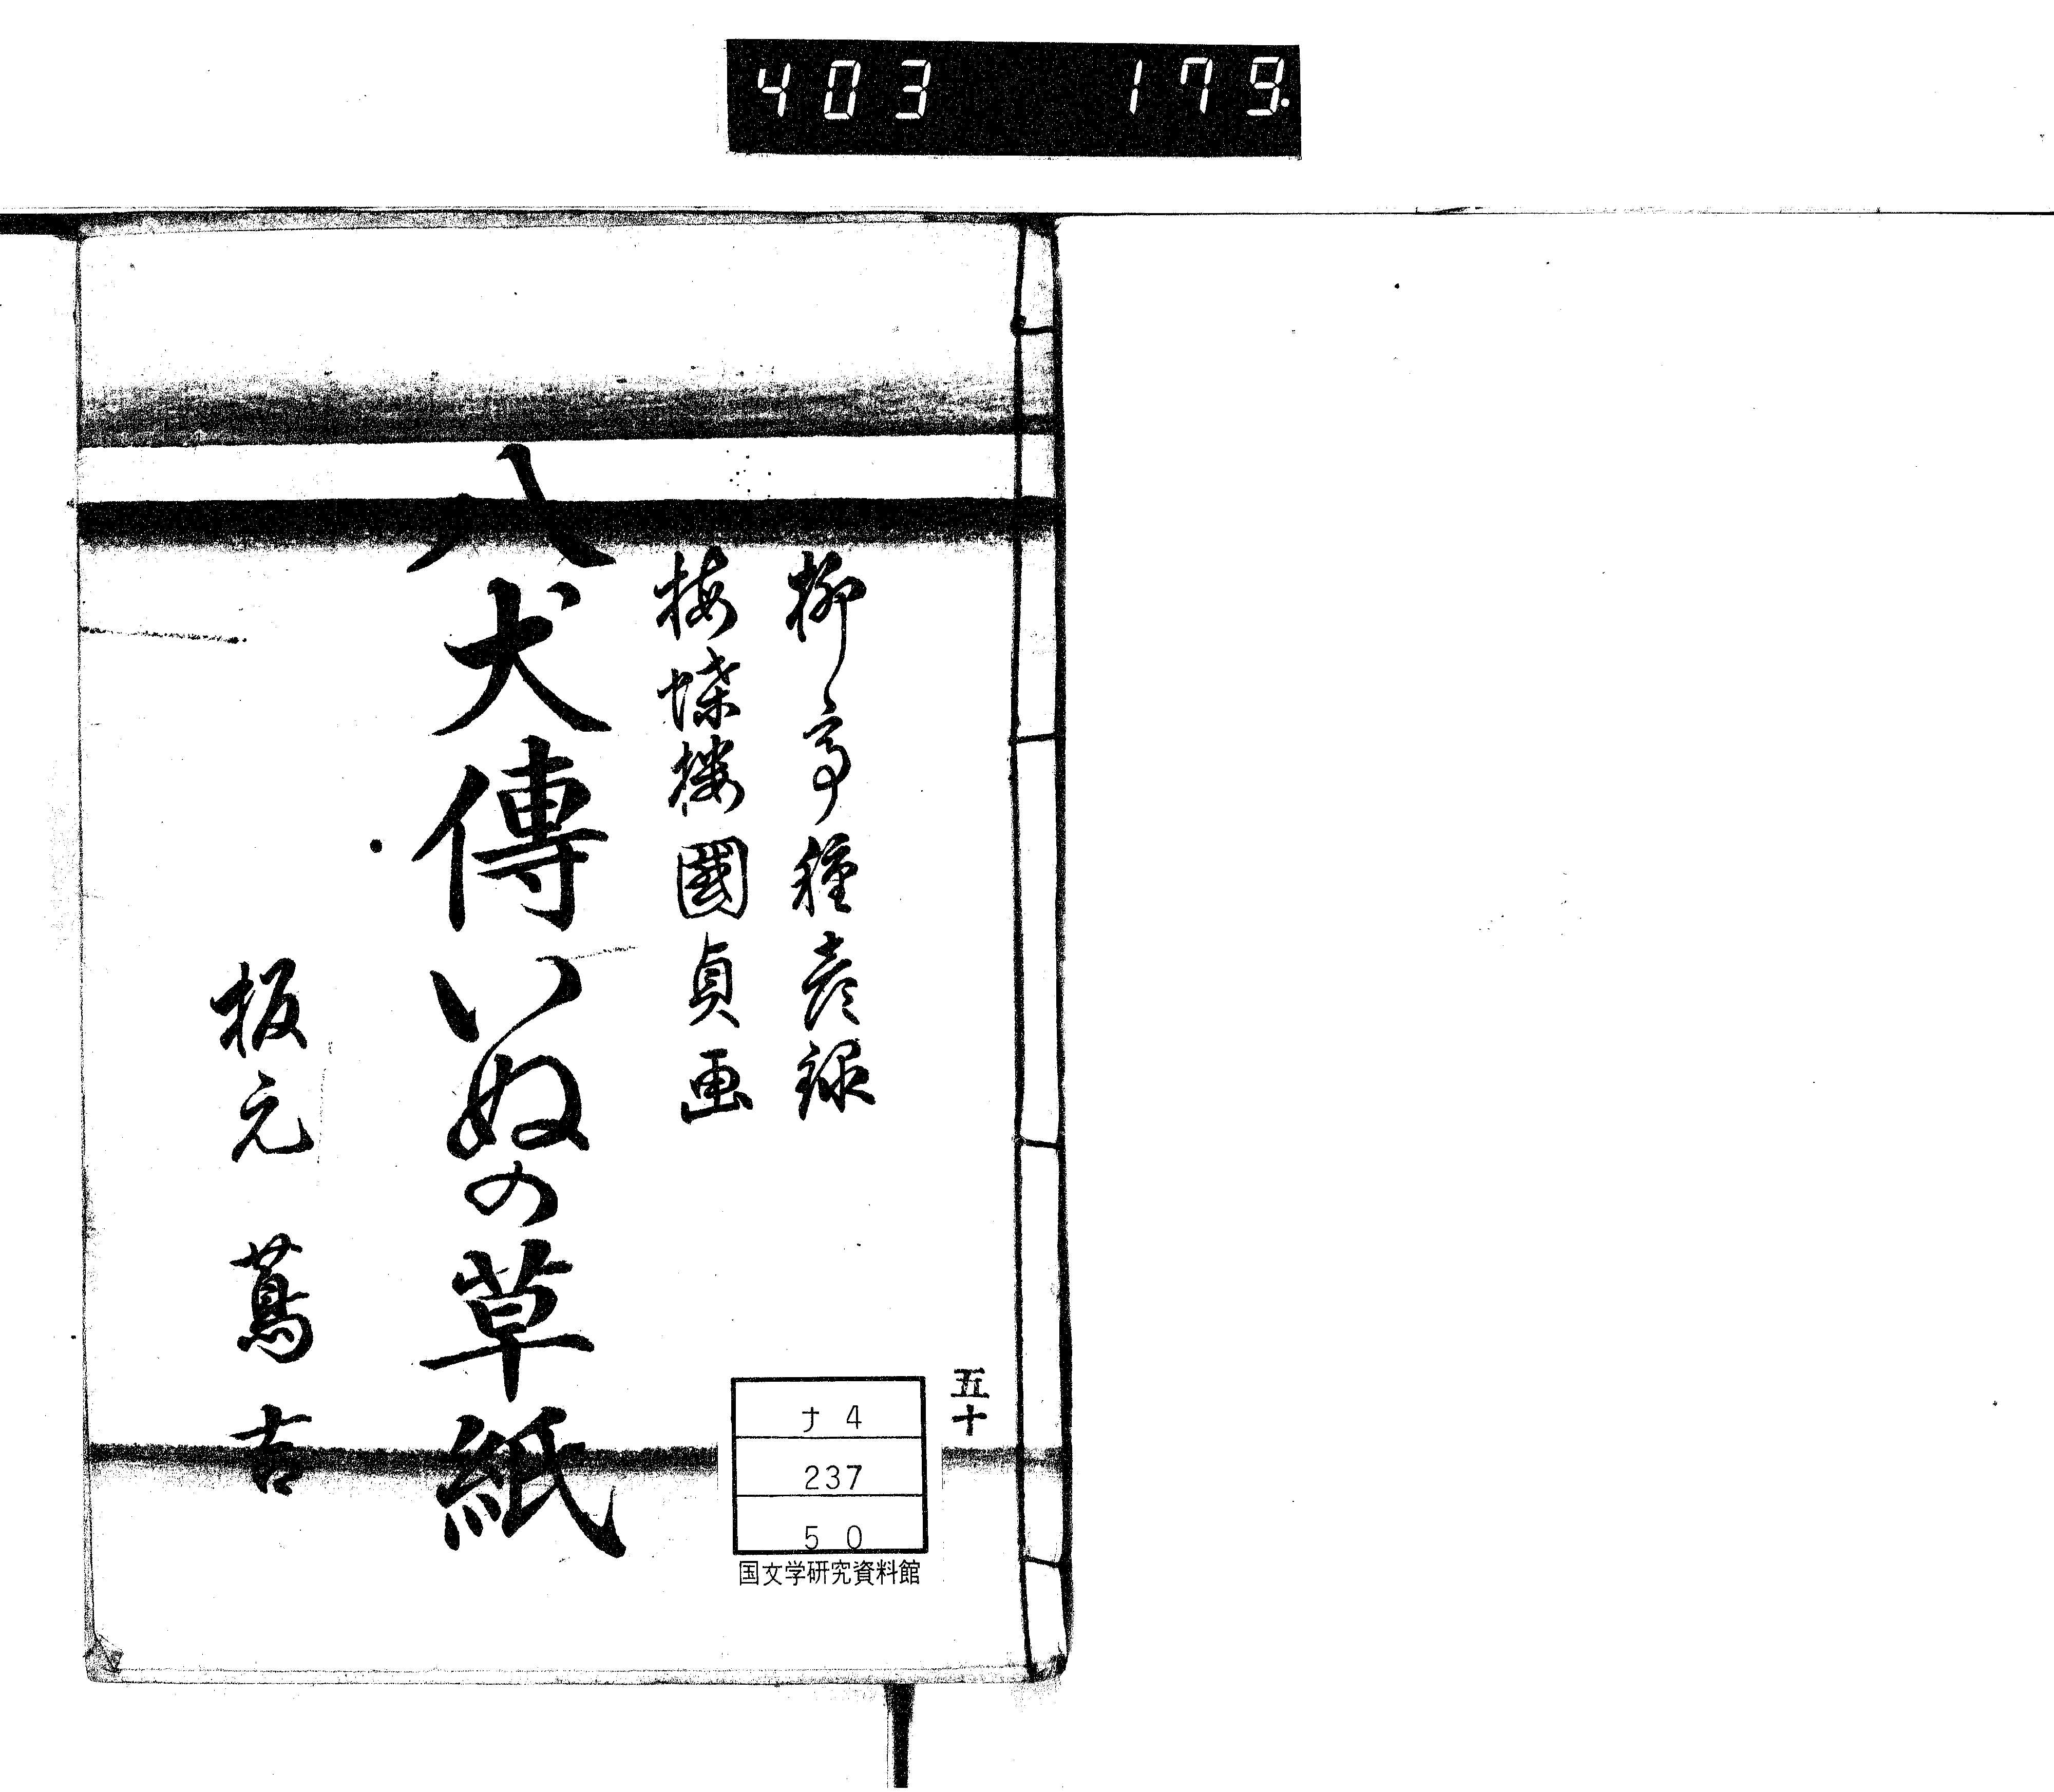 403 179.
柳亭種彦録
梅蝶楼國貞画
八犬傳いぬの草紙
板元 蔦吉
五十
ナ4
237
50
国文学研究資料館